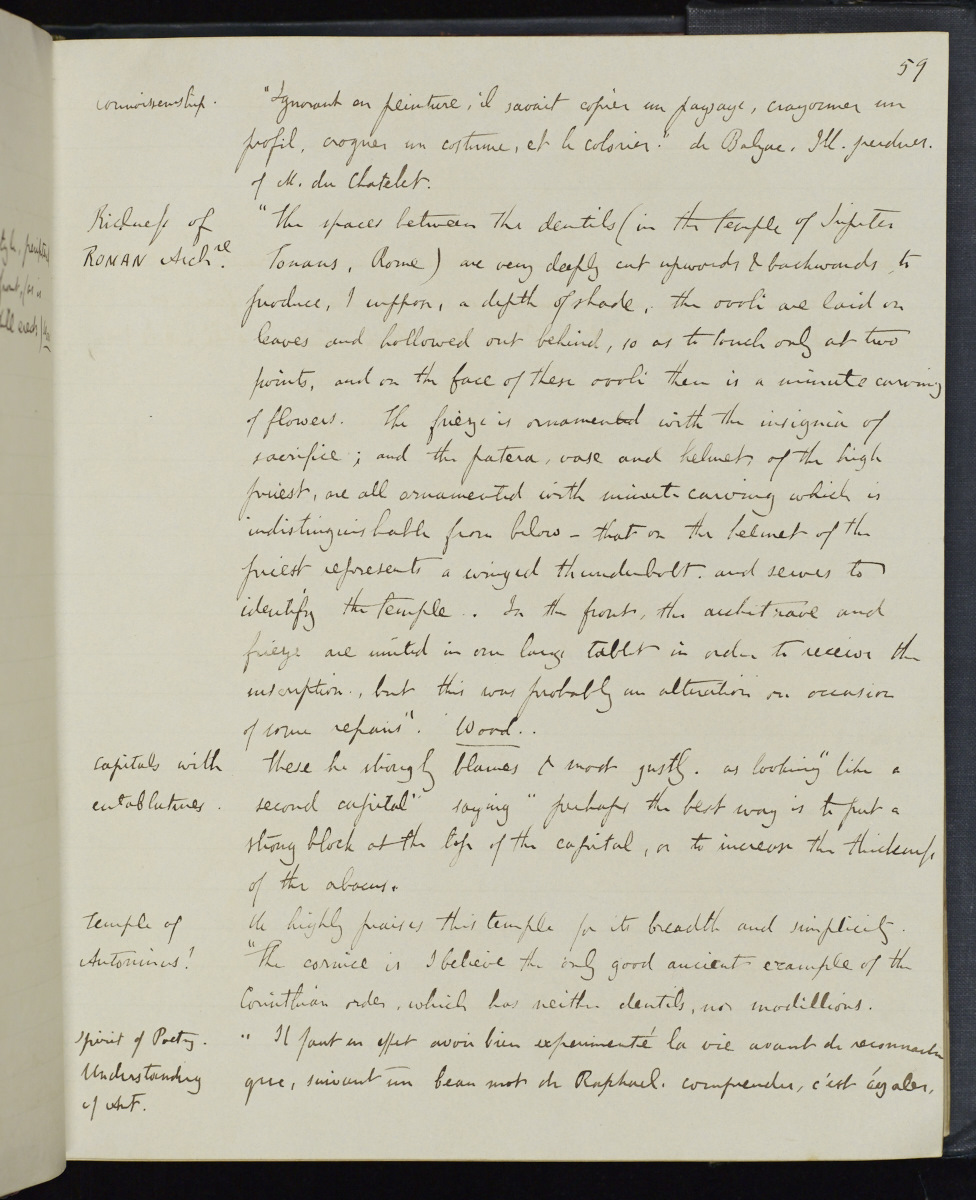 59
connoisseurship. "Ignorant en peinture, il savait copier un paysage, crayonner un
profil, croquer un costume, et le colorier." de Balzac. Ill. perdues.
of M. du Chatelet.
Richness of "The spaces between the dentils (in the temple of Jupiter
ROMAN Archre. Tonans, Rome) are very deeply cut upwords & backwards, to
produce, I suppose, a depth of shade, the ovoli are laid on
leaves and hollowed out behind, so as to touch only at two
points, and on the face of these ovoli there is a minute carving
of flowers. The frieze is ornamented with the insignia of
sacrifice; and the patera, vase and helmet, of the high
priest, are all ornamented with minute carving which is
indistinguishable from below - that on the helmet of the
priest represents a winged thunderbolt. and serves to
identify the temple.. In the front, the architrave and
frieze are united in one large tablet in order to receive the
inscription, but this was probably an alteration on occasion
of some repairs". Wood..
Capitals with These he strongly blames & most justly. as looking "like a
entablatures. second capital" saying "perhaps the best way is to put a
strong block at the top of the capital, or to increase the thickness
of the abacus.
Temple of He highly praises this temple for its breadth and simplicity.
Antoninus! "The cornice is I believe the only good ancient example of the
Corinthian order, which has neither dentils, nor modillions.
Spirit of Poetry. " Il faut en effet avoir bien experimenté la vie avant de reconnaitre
Understanding que, suivant un beau mot de Raphael. comprendre, c'est égaler,
of Art.